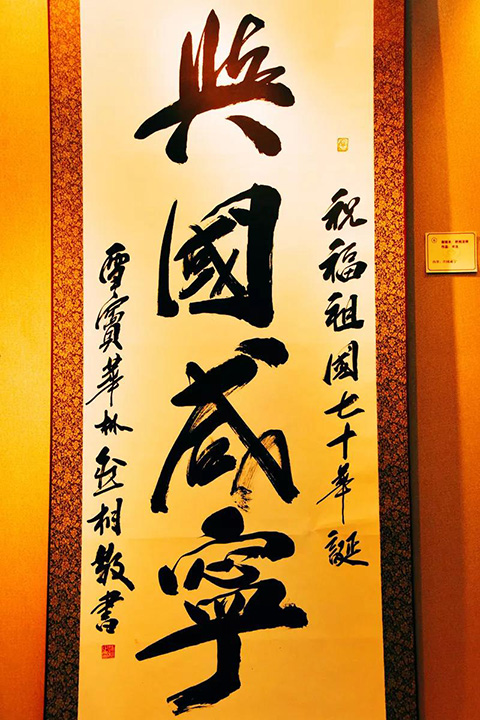 祝福祖國七十華誕
與國咸寧
雪竇華林相敬書